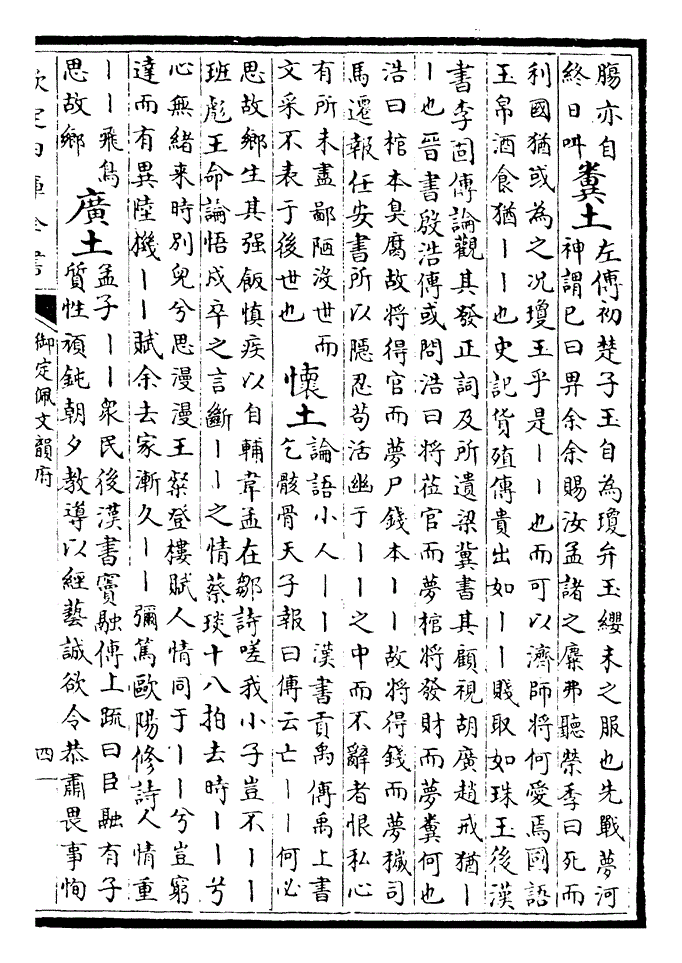 腸亦自
終日叫
糞土
左傳初楚子玉自為瓊弁玉纓未之服也先戰夢河
神謂已曰畀余余賜汝孟諸之麋弗聽榮季曰死而
利國猶或為之况瓊玉乎是丨丨也而可以濟師將何愛焉國語
玉帛酒食猶丨丨也史記貨殖傳貴出如丨丨賤取如珠玉後漢
書李固傳論觀其發正詞及所遺梁冀書其顧視胡廣趙戒猶丨
丨也晉書殷浩傳或問浩曰將莅官而夢棺將發財而夢糞何也
浩曰棺本臭腐故將得官而夢尸錢本丨丨故將得錢而夢穢司
馬遷報任安書所以隱忍苟活幽于丨丨之中而不辭者恨私心
有所未盡鄙陋沒世而
文采不表于後世也
懷土
論語小人丨丨漢書貢禹傳禹上書
乞骸骨天子報曰傳云亡丨丨何必
思故鄉生其强飯慎疾以自輔韋孟在鄒詩嗟我小子豈不丨丨
班彪王命論悟戍卒之言斷丨丨之情蔡琰十八拍去時丨丨兮
心無緒来時别兒兮思漫漫王粲登樓賦人情同于丨丨兮豈窮
達而有異陸機丨丨賦余去家漸久丨丨彌篤歐陽修詩人情重
丨丨飛鳥
思故鄉
廣土
孟子丨丨衆民後漢書竇融傳上疏曰臣融有子
質性頑鈍朝夕教導以經藝誠欲令恭肅畏事恂
欽定四庫全書
御定佩文韻府
四一